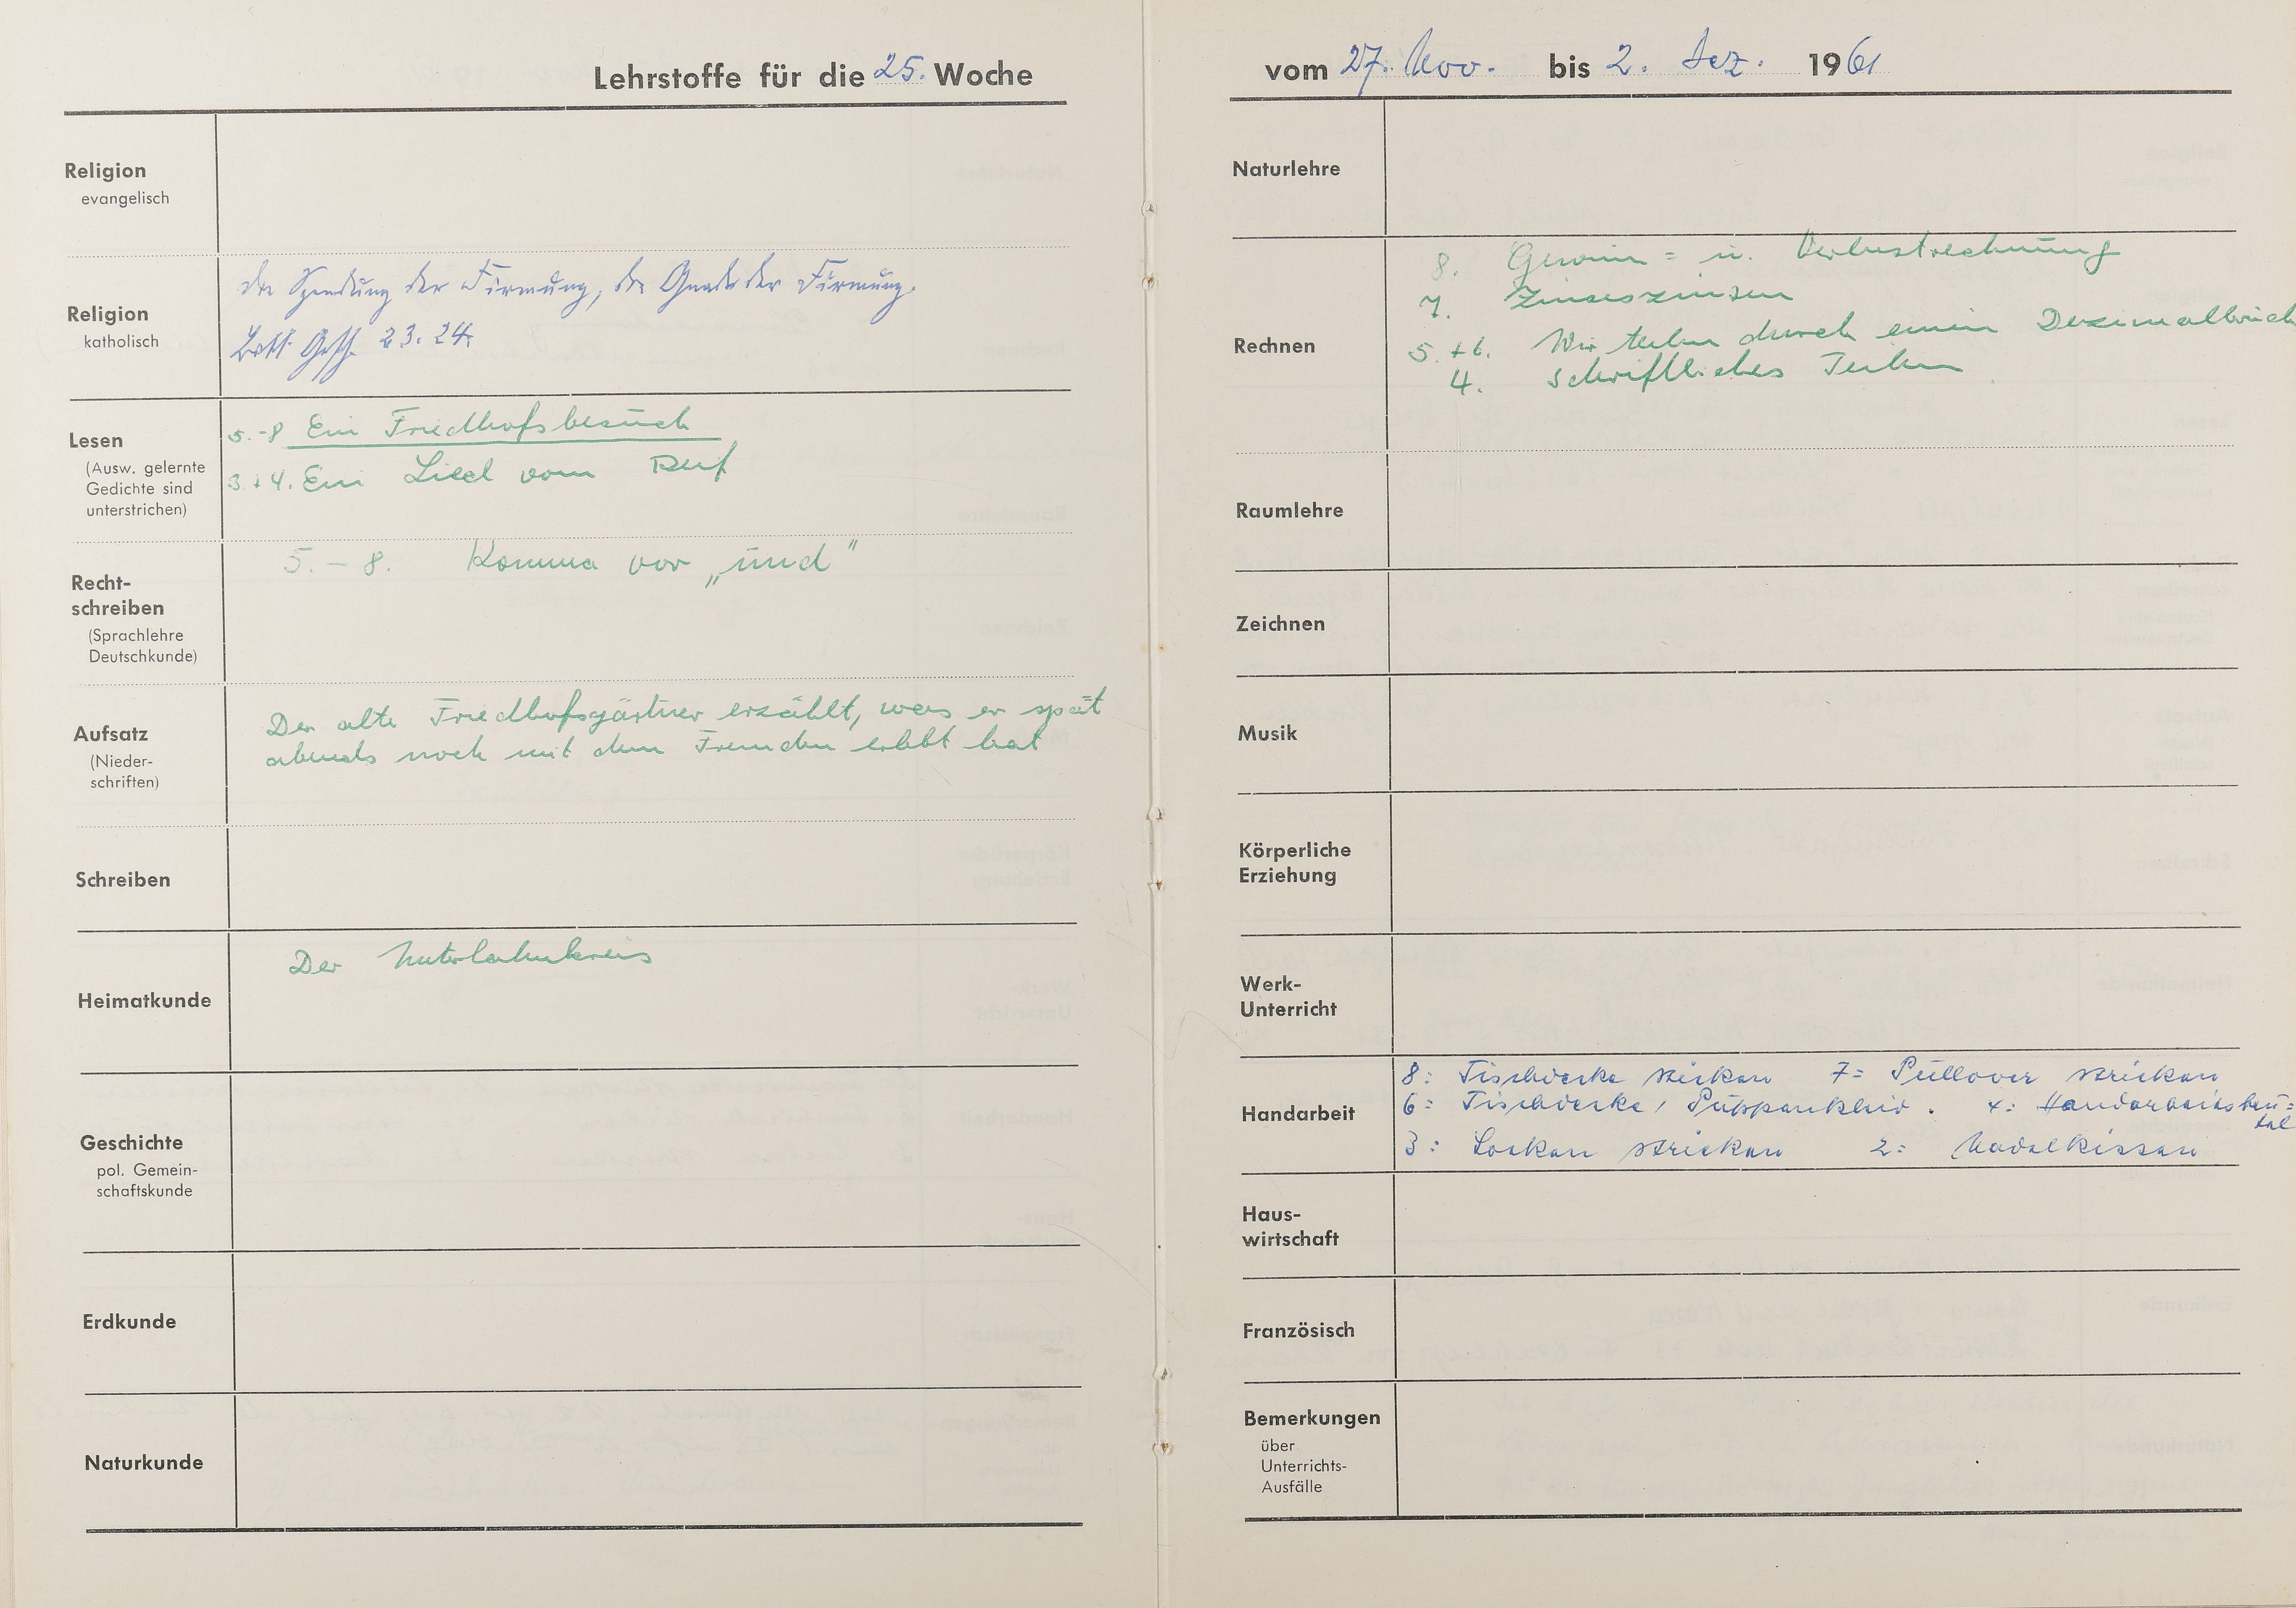 Lehrstoffe für die 25. Woche
Religion
evangelisch
Religion
katholisch
die Spendung der Firmung, die Gnade der Firmung.
Gesch. 23. 24.
Lesen
(Ausw. gelernte
Gedichte sind
unterstrichen)
5.-8 Ein Friedhofsbesuch
3.+4. Ein Lied vom Reif
Recht-
schreiben
(Sprachlehre
Deutschkunde)
5.-8. Komma vor „und"
Aufsatz
(Nieder-
schriften)
Der alte Friedhofsgärtner erzählt, was er spät
abends noch mit dem Fremden erlebt hat
Schreiben
Heimatkunde
Der Unterlahnkreis
Geschichte
pol. Gemein-
schaftskunde
Erdkunde
Naturkunde
vom 27. Nov. bis 2. Dez. 1961
Naturlehre
Rechnen
8. Gewinn= u. Verlustrechnung
7. Zinseszinsen
5.+6. Wir teilen durch einen Dezimalbruch
4. Schriftliches Teilen
Raumlehre
Zeichnen
Musik
Körperliche
Erziehung
Werk-
Unterricht
Handarbeit
8: Tischdecke sticken 7= Pullover stricken
6: Tischdecke, Puppenkleid. 4: Handarbeitsbeu=
tel
3: Socken stricken 2: Nadelkissen
Haus-
wirtschaft
Französisch
Bemerkungen
über
Unterrichts-
Ausfälle